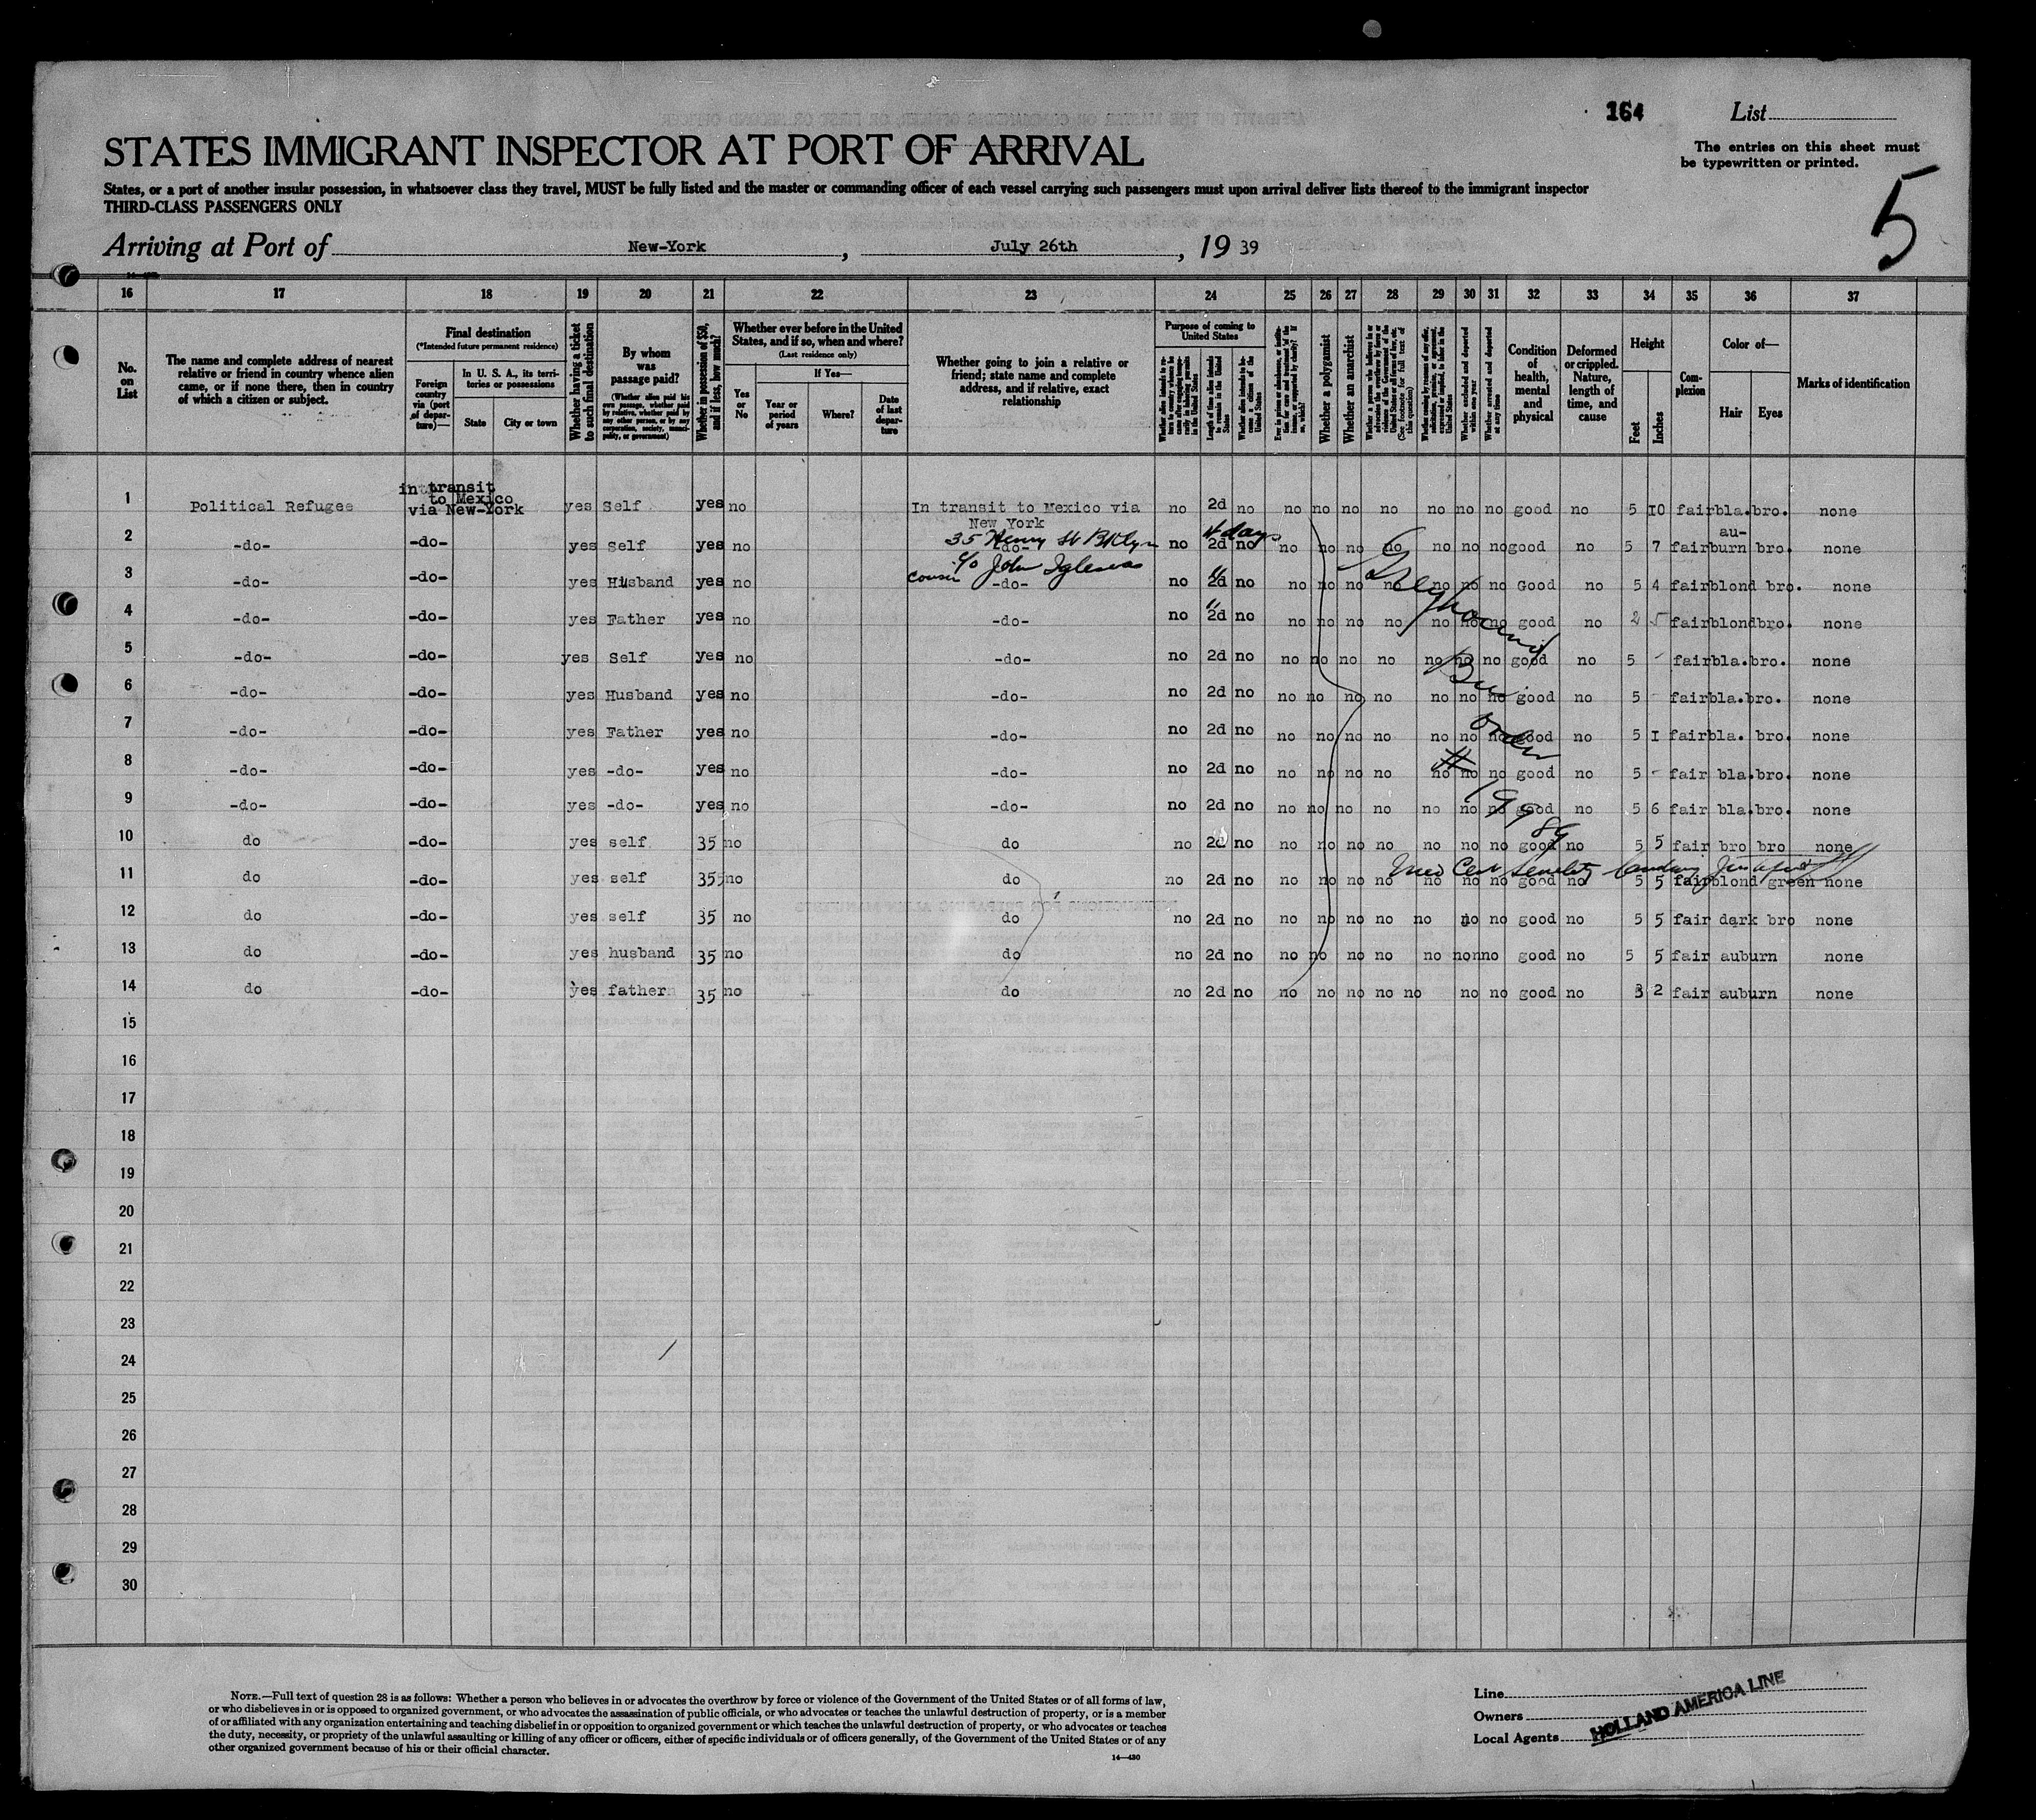 164
List
STATES IMMIGRANT INSPECTOR AT PORT OF ARRIVAL
The entries on this sheet must
be typewritten or printed.
States, or a port of another insular possession, in whatsoever class they travel, MUST be fully listed and the master or commanding officer of each vessel carrying such passengers must upon arrival deliver lists thereof to the immigrant inspector
THIRD-CLASS PASSENGERS ONLY
5
Arriving at Port of New-York, July 26th, 19 39
16 17 18 19 20 21 22 23 24 25 26 27 28 29 30 31 32 33 34 35 36 37
No. on List
The name and complete address of nearest
relative or friend in country whence alien
came, or if none there, then in country
of which a citizen or subject.
Final destination
(*Intended future permanent residence)
Foreign country via (port of departure)—
In U. S. A., its territories or possessions
State
City or town
Whether having a ticket to such final destination
By whom was passage paid?
(Whether alien paid his own passage, whether paid by relative, whether paid by any other person, or by any corporation, society, municipality, or government)
Whether in possession of $50, and if less, how much?
Whether ever before in the United
States, and if so, when and where?
(Last residence only)
Yes or No
If Yes—
Year or period of years
Where?
Date of last departure
Whether going to join a relative or
friend; state name and complete
address, and if relative, exact
relationship
Purpose of coming to United States
Length of time alien intends to remain in the United States
Whether alien intends to become a citizen of the United States
Whether a polygamist
Whether an anarchist
Whether excluded and deported within one year
Whether arrested and deported at any time
Condition of health, mental and physical
Deformed or crippled. Nature, length of time, and cause
Height
Feet
Inches
Complexion
Color of—
Hair
Eyes
Marks of identification
1 Political Refugee in transit to Mexico via New-York yes Self yes no In transit to Mexico via New York no 2d no no no no no no no no good no 5 10 fair bla. bro. none
2 -do- -do- yes self yes no 35 Henry St Bklyn -do- no 4 days 2d no no no no no no no no good no 5 7 fair auburn bro. none
3 -do- -do- yes Husband yes no cousin c/o John Iglesias -do- no 2d no no no no no no no no Good no 5 4 fair blond bro. none
4 -do- -do- yes Father yes no -do- no 2d no no no no no no no no good no 2 5 fair blond bro. none
5 -do- -do- yes Self yes no -do- no 2d no no no no no no no no good no 5 - fair bla. bro. none
6 -do- -do- yes Husband yes no -do- no 2d no no no no no no no no good no 5 - fair bla. bro. none
7 -do- -do- yes Father yes no -do- no 2d no no no no no no no no good no 5 I fair bla. bro. none
8 -do- -do- yes -do- yes no -do- no 2d no no no no no no no no good no 5 - fair bla. bro. none
9 -do- -do- yes -do- yes no -do- no 2d no no no no no no no no good no 5 6 fair bla. bro. none
10 do -do- yes self 35 no do no 2d no no no no no no no no good no 5 5 fair bro bro none
11 do -do- yes self 35 no do no 2d no no no no no no no no good no 5 5 fair blond green none
12 do -do- yes self 35 no do no 2d no no no no no no no no good no 5 5 fair dark bro none
13 do -do- yes husband 35 no do no 2d no no no no no no no no good no 5 5 fair auburn none
14 do -do- yes father 35 no do no 2d no no no no no no no no good no 3 2 fair auburn none
Greyhound
Bus
order
# 19989
Med Cert
15
16
17
18
19
20
21
22
23
24
25
26
27
28
29
30
NOTE.—Full text of question 28 is as follows: Whether a person who believes in or advocates the overthrow by force or violence of the Government of the United States or of all forms of law,
or who disbelieves in or is opposed to organized government, or who advocates the assassination of public officials, or who advocates or teaches the unlawful destruction of property, or is a member
of or affiliated with any organization entertaining and teaching disbelief in or opposition to organized government or which teaches the unlawful destruction of property, or who advocates or teaches
the duty, necessity, or propriety of the unlawful assaulting or killing of any officer or officers, either of specific individuals or of officers generally, of the Government of the United States or of any
other organized government because of his or their official character.
14—430
Line
Owners
Local Agents
HOLLAND AMERICA LINE